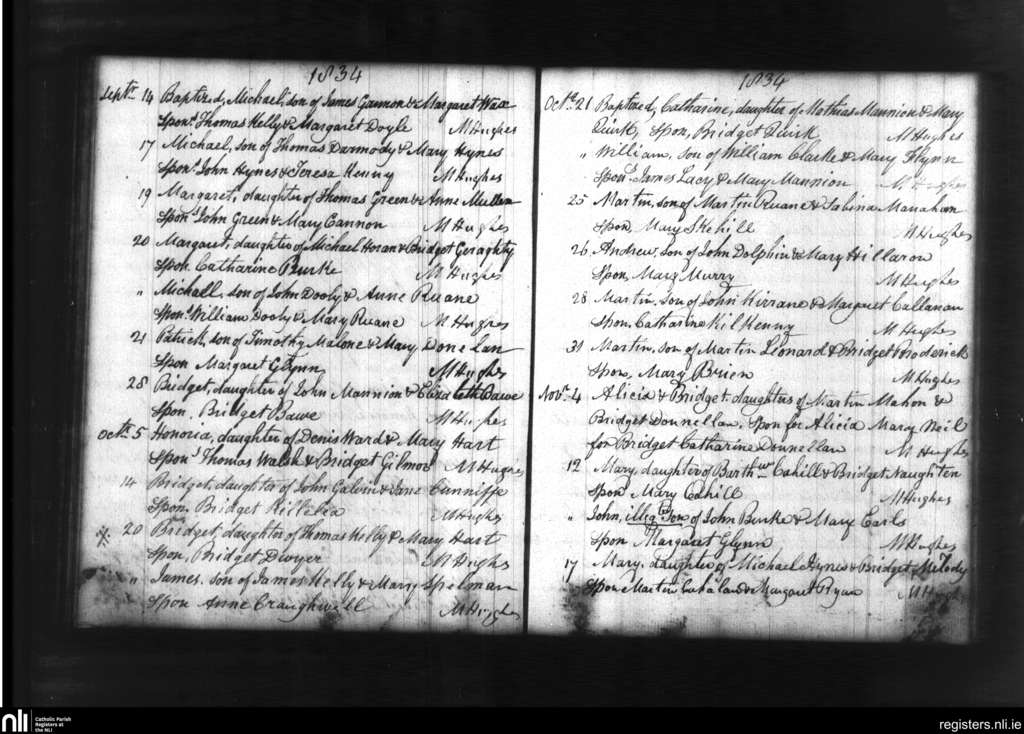 1834
Septr. 14 Baptized, Michael, son of James Gannon & Margaret
Sponr. Thomas Kelly & Margaret Doyle M Hughes
17 Michael, son of Thomas Darmody & Mary Hynes
Sponr. John Hynes & Teresa Kenny M Hughes
19 Margaret, daughter of Thomas Green & Anne Mullen
Sponr. John Green & Mary Cannon M Hughes
20 Margaret, daughter of Michael Horan & Bridget Geraghty
Spon. Catharine Burke M Hughes
" Michall, son of John Dooly & Anne Ruane
Sponr. William Dooly & Mary Ruane M Hughes
21 Patrick, son of Timothy Malone & Mary Donelan
Spon Margaret Glynn M Hughes
28 Bridget, daughter of John Mannion & Elizabeth Bawe
Spon. Bridget Bawe M Hughes
Octr. 5 Honoria, daughter of Denis Ward & Mary Hart
Sponr. Thomas Walsh & Bridget Gilmor M Hughes
14 Bridget, daughter of John Galvin & Jane Cunniffe
Spon. Bridget Killelea M Hughes
20 Bridget, daughter of Thomas Kelly & Mary Hart
Spon, Bridget Dwyer M Hughs
" James, son of James Kelly & Mary Spelman
Spon Anne Craughwell M Hughes
1834
Octr. 21 Baptized, Catharine, daughter of Mathias Mannion & Mary
Quirk, Spon, Bridget Quirk M Hughes
" William, son of William Clarke & Mary Flynn
Sponr. James Lacy & Mary Mannion M Hughes
25 Martin, son of Martin Ruane & Sabina Manahan
Spon, Mary Skehill M Hughes
26 Andrew, son of John Dolphin & Mary Hillaron
Spon, Mary Murry M Hughes
28 Martin, son of John Kirrane & Margaret Callanan
Spon, Catharine Kilkenny M Hughes
31 Martin, son of Martin Leonard & Bridget Broderick
Spon, Mary Brien M Hughes
Novr. 4 Alicia & Bridget, daughters of Martin Mahon &
Bridget Donnellan. Spon for Alicia Mary Neil
for Bridget Catharine Donnellan M Hughes
12 Mary, daughter of Barthw. Cahill & Bridget Naughten
Spon Mary Cahill M Hughes
" John, illegte. Son of John Burke & Mary Earls
Spon Margaret Glynn M Hughes
17 Mary, daughter of Michael Hynes & Bridget Melody
Spon Martin & Margaret Ryan M Hughs
nli
Catholic Parish
Registers at
the NLI
registers.nli.ie